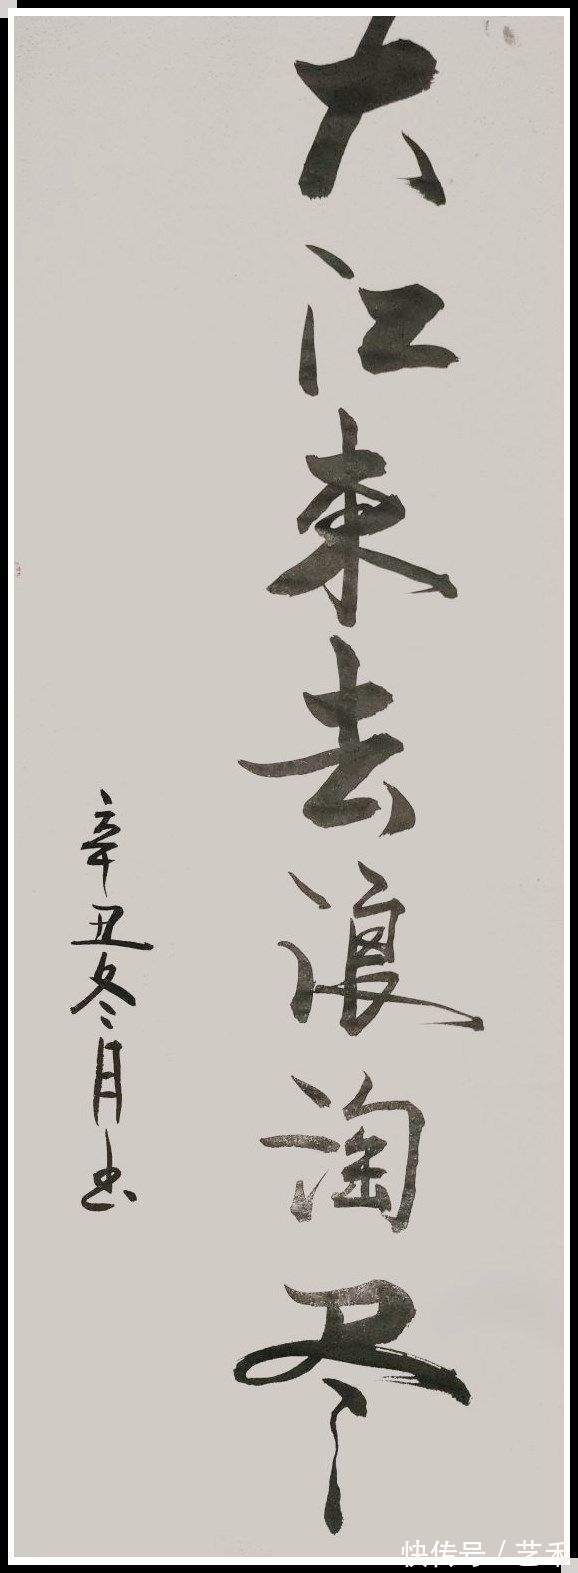 大江来去浪淘尽
辛丑冬月书
快传号 / 艺和